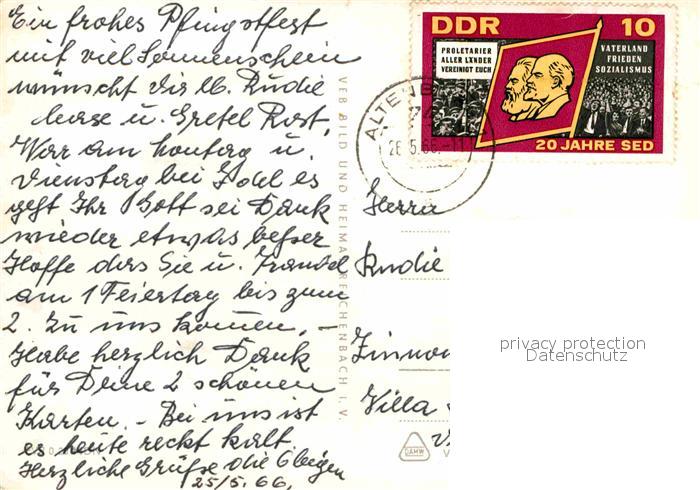 Ein frohes Pfingstfest
mit viel Sonnenschein
wünscht Dir lb. Rudie
u. Gretel Rost,
War am Montag u.
Dienstag bei es
geht Ihr Gott sei Dank
wieder etwas besser
Hoffe das Sie u.
am 1 Feiertag bis zum
2. Zu uns kommen, –
Habe herzlich Dank
für Deine 2 schönen
Karten. – Bei uns ist
es heute recht kalt.
Herzliche Grüße die Obigen
25/5. 66,
VEB BILD UND HEIMAT REICHENBACH I. V.
DDR 10
PROLETARIER
ALLER LÄNDER
VEREINIGT EUCH
VATERLAND
FRIEDEN
SOZIALISMUS
20 JAHRE SED
ALTENB
26.5.66.-11
Herrn
Rudie
Zinnow
Villa
DAMW
V
privacy protection
Datenschutz